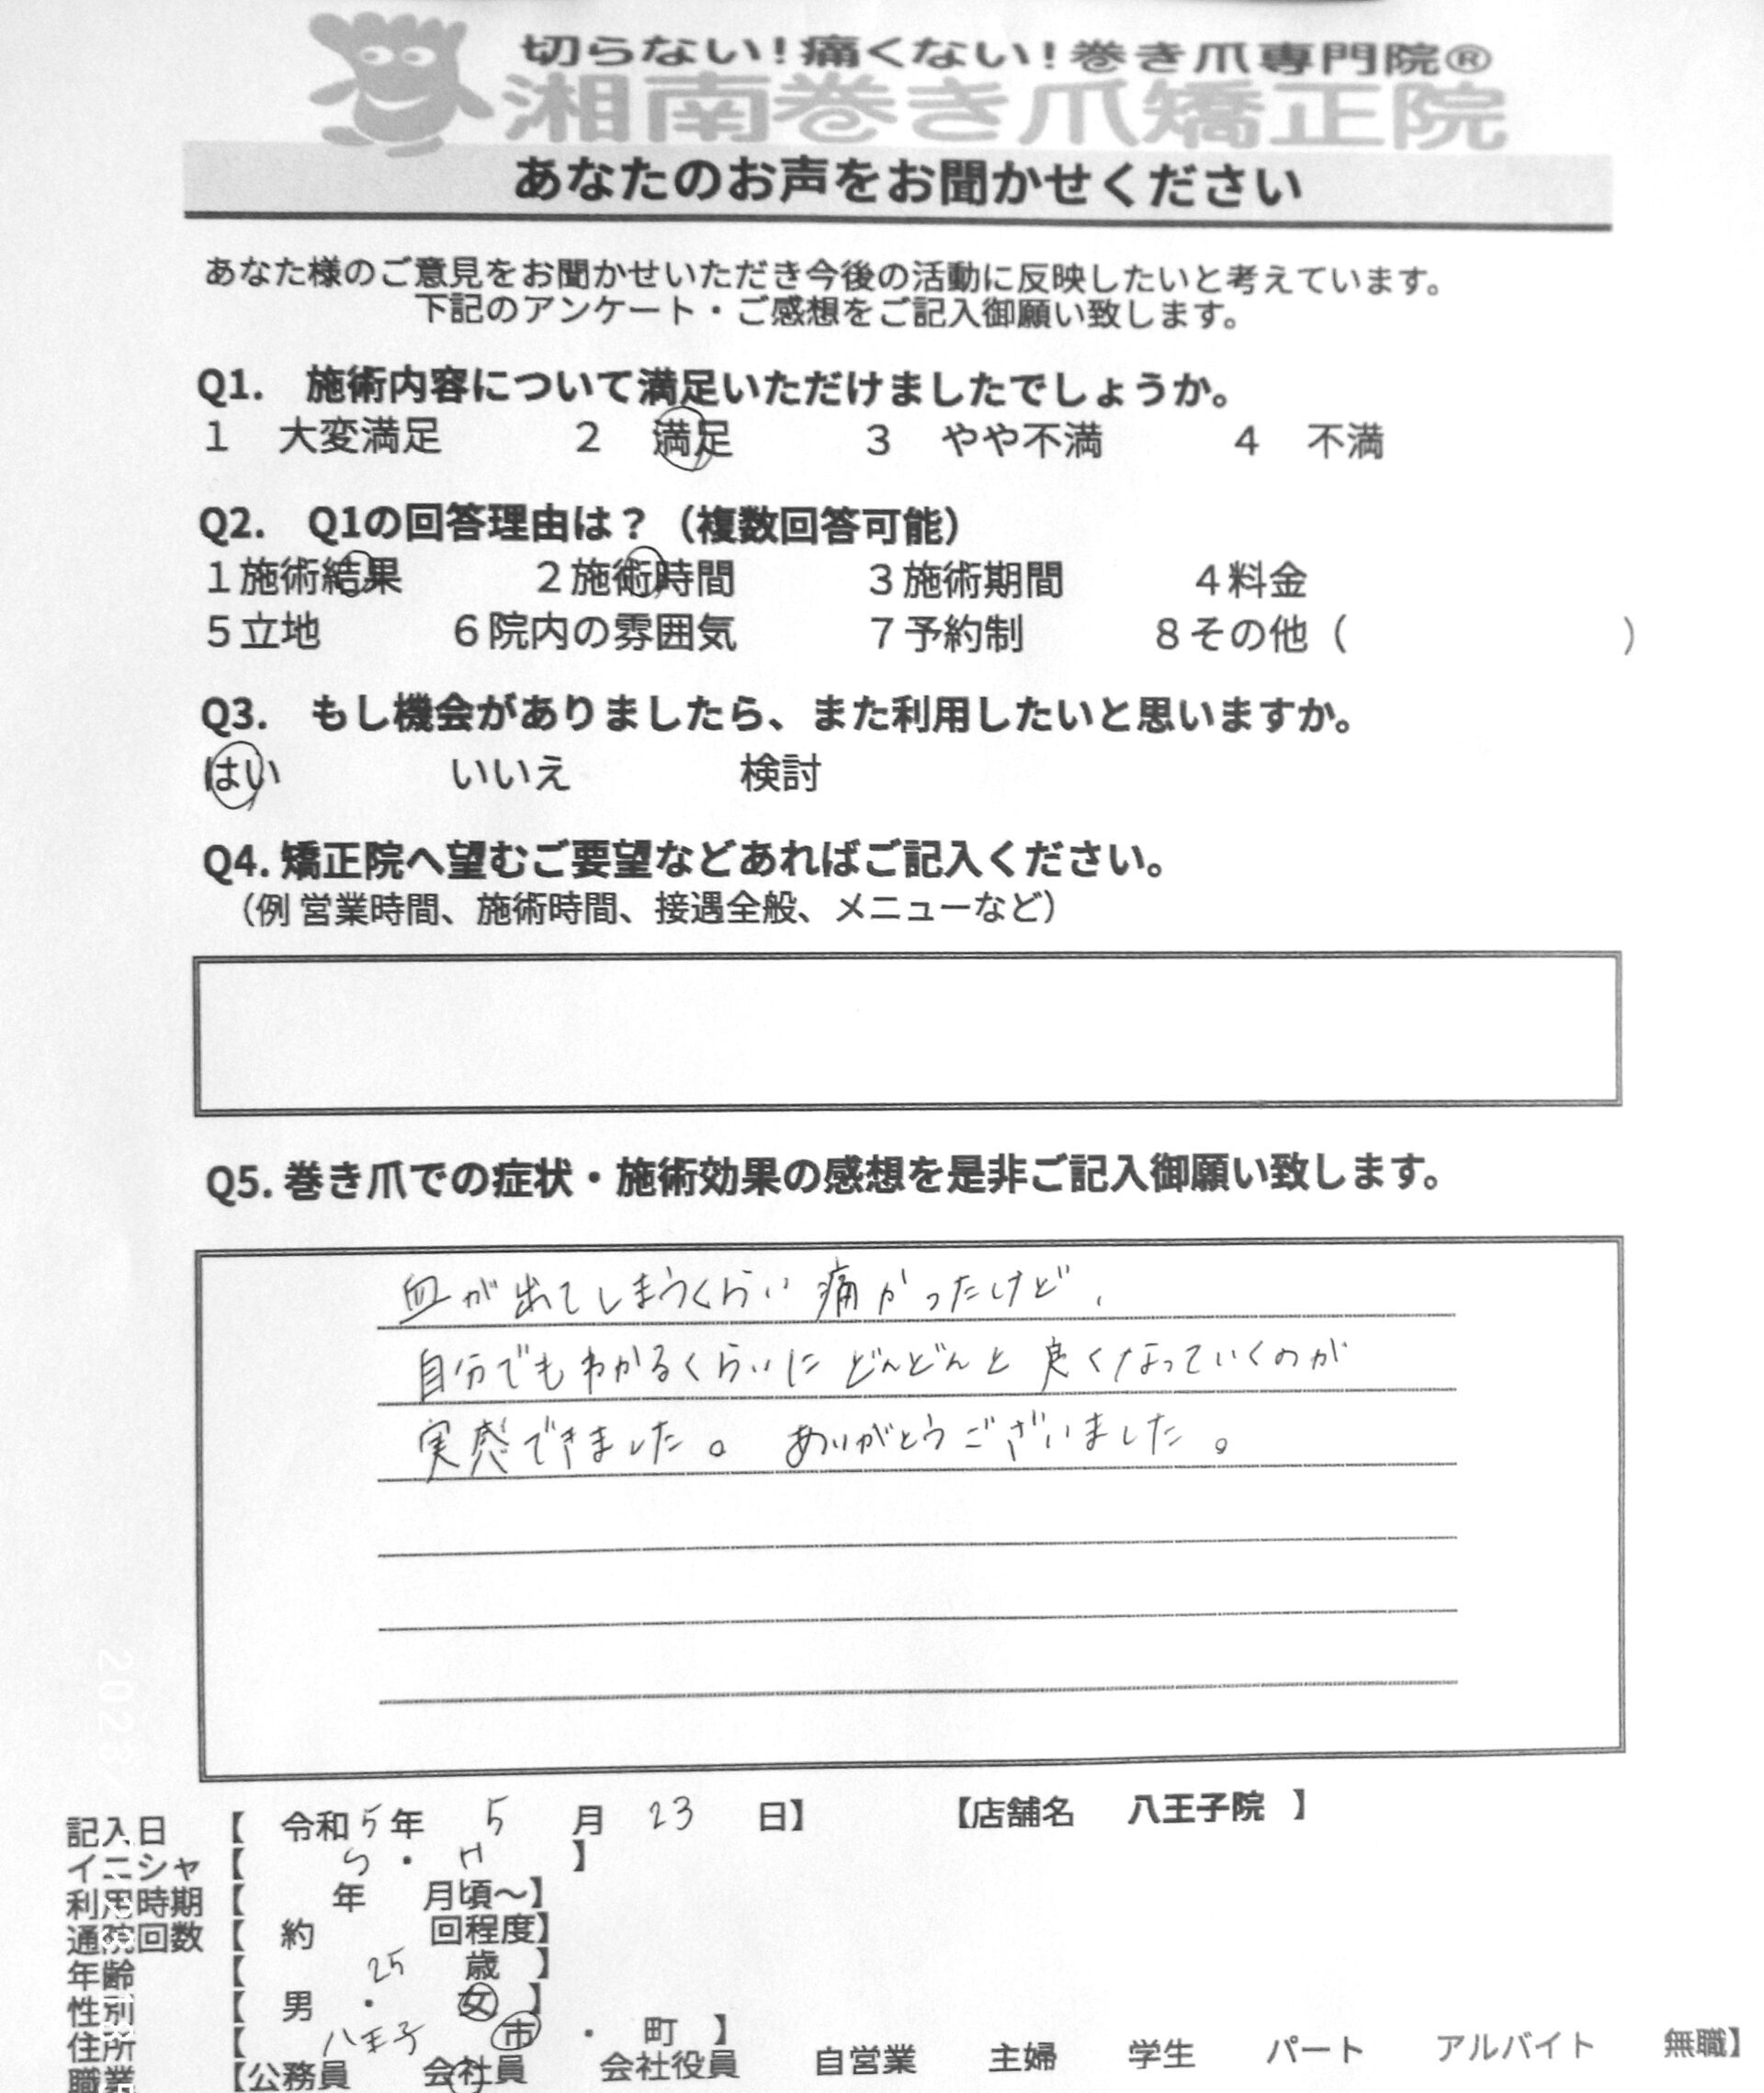 切らない!痛くない!巻き爪専門院®
湘南巻き爪矯正院
あなたのお声をお聞かせください
あなた様のご意見をお聞かせいただき今後の活動に反映したいと考えています。
下記のアンケート・ご感想をご記入御願い致します。
Q1. 施術内容について満足いただけましたでしょうか。
1 大変満足 2 満足 3 やや不満 4 不満
Q2. Q1の回答理由は?(複数回答可能)
1施術結果 2施術時間 3施術期間 4料金
5立地 6院内の雰囲気 7予約制 8その他( )
Q3. もし機会がありましたら、また利用したいと思いますか。
はい いいえ 検討
Q4. 矯正院へ望むご要望などあればご記入ください。
(例 営業時間、施術時間、接遇全般、メニューなど)
Q5. 巻き爪での症状・施術効果の感想を是非ご記入御願い致します。
血が出てしまうくらい痛かったけど、
自分でもわかるくらいにどんどんと良くなっていくのが
実感できました。ありがとうございました。
記入日 【 令和5年 5 月 23 日】 【店舗名 八王子院 】
イニシャ 【 ・ H 】
利用時期 【 年 月頃〜】
通院回数 【 約 回程度】
年齢 【 25 歳 】
性別 【 男 ・ 女 】
住所 【 八王子 市 ・ 町 】
職業 【公務員 会社員 会社役員 自営業 主婦 学生 パート アルバイト 無職】